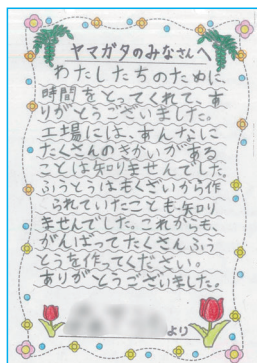 ヤマガタのみなさんへ
わたしたちのために
時間をとってくれて、あ
りがとうございました。
工場には、あんなに
たくさんのきかいがある
ことは知りませんでした。
ふうとうはもくざいから作
られていたことも、知り
ませんでした。これからも、
がんばってたくさんふう
とうを作ってください。
ありがとうございました。
より